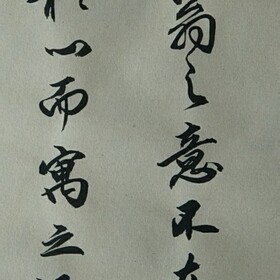 翁之意不在
心而寓之酒